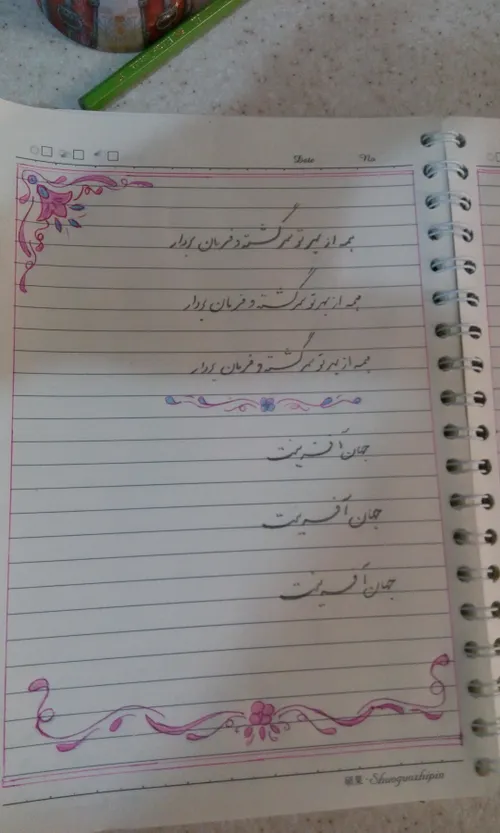 Date No
همه از بهر تو سرگشته و فرمان بردار
همه از بهر تو سرگشته و فرمان بردار
همه از بهر تو سرگشته و فرمان بردار
جهان آفرینت
جهان آفرینت
جهان آفرینت
碩果-Shuoguozhipin